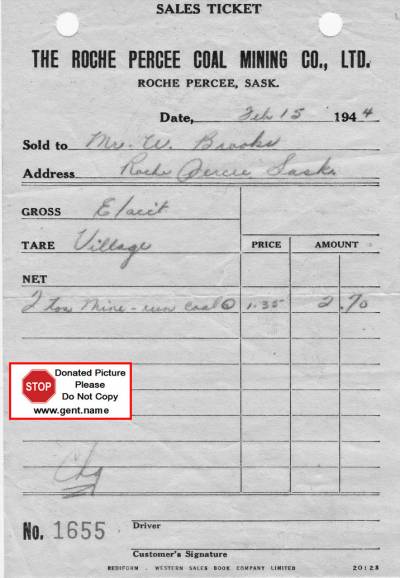 SALES TICKET
THE ROCHE PERCEE COAL MINING CO., LTD.
ROCHE PERCEE, SASK.
Date, Feb 15 1944
Sold to Mr. W. Brooks
Address Roche Percee Sask.
GROSS
TARE Village PRICE AMOUNT
NET
2 ton mine-run coal @ 1.35 2.70
STOP
Donated Picture
Please
Do Not Copy
www.gent.name
Chg
No. 1655
Driver
Customer's Signature
REDIFORM - WESTERN SALES BOOK COMPANY LIMITED 20128